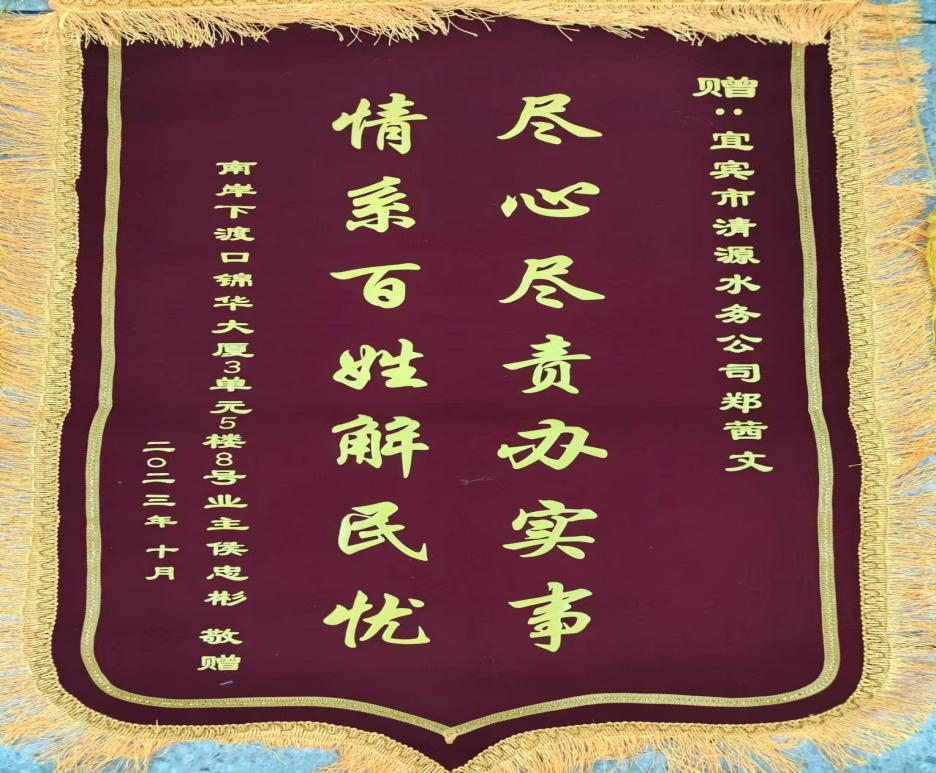 赠:宜宾市清源水务公司郑茜文
尽心尽责办实事
情系百姓解民忧
南岸下渡口锦华大厦3单元5楼8号业主侯忠彬 敬赠
二〇二三年十月